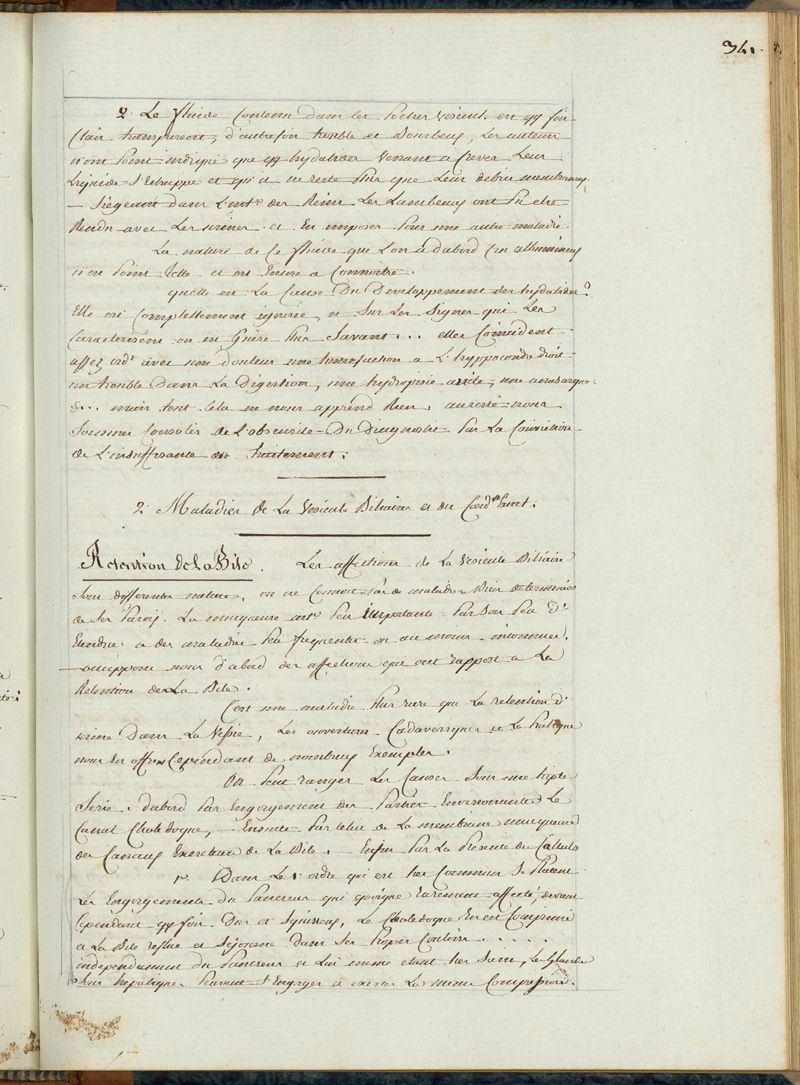 341.
2. Le fluide Contenu dans les Poches vesicul. est qq fois
Clair transparent, d'autrefois trouble et Bourbeux, Les auteurs
n'ont Point indiqué que qq hydatides venant a Crever Leur
Liquide S'Echappe et qu'il ne reste Plus que Leur debris membraneux,
Siégeant dans L'int.r des Reins Les Lambeaux ont Pu etre
Rendu avec Les urines et En imposer Pour une autre maladie.
La nature de Ce fluide que L'on a d'abord Cru albumineux
n'est Point telle et est Encore a Connoitre.
quelle est La Cause Du Developpement des hydatides?
Elle est Complettement ignorée, et Sur Les Signes qui Les
Caracterisent on est Guère Plus Savant... elles Coincident
assez ord.t avec une douleur une tumefaction a L'hyppocondre droit
un trouble Dans La Digestion, une hydropisie acide,
&... mais tout Cela ne nous apprend Rien, aureste nous
Sommes Consolés de L'obscurité Du Diagnostic Par La Conviction
de L'insuffisante du traitement.
2. Maladies de La Vesicule Biliaire et du Cond.t Panct.
Retention de La Bile. Les affections de La Vesicule Biliaire
Sont differentes nature, on ne Connoit Pas de maladies Bien determinées
de Ses Parois. La muqueuse est Peu importante Par Son Peu d'
Etendue a des maladies Peu frequentes ou au moins inconnues.
occuppons nous d'abord des affections qui ont rapport a La
Retention de La Bile.
C'est une maladie Plus rare que La retention d'
urine Dans La Vessie, Les ouvertures Cadaveriques et La Pratique
nous En offres Cependant de nombreux Exemples.
On Peut ranger Les Causes Sous une triple
Serie. d'abord Par Engorgement des Parties Environnantes Le
Canal Choledoque, Ensuite Par Celui de La membrane muqueuse
des Canaux Excreteurs de La Bile. Enfin Par La Présence des Calculs
1.º Dans Le 1.er ordre qui est tres Commun Se Placent
Les Engorgements du Pancreas qui quoique rarement affecté, devient
Cependant qq fois Dur et Squirreux, Le Choledoque En est Comprimé
et La Bile reflue et Séjourne dans Ses Propres Conduits....
independament du Pancreas et Lui meme etant tres Sain, Les Glandes
Sous hepatiques Peuvent S'Engorger et exercer La meme Compression.